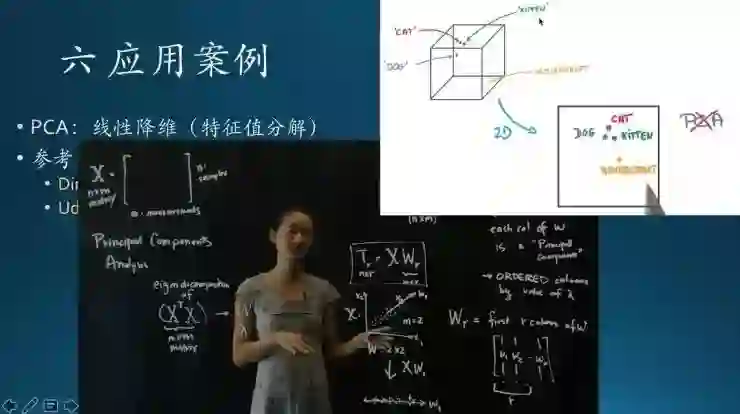 六 应用案例
• PCA：线性降维（特征值分解）
• 参考
• Di
• Ud
'KITTEN'
'CAT'
'DOG'
2D
CAT
DOG
KITTEN
PCA
X =
n×m
matrix
samples
m - measurements
Principal Components
Analysis
eigendecomposition
of
(XᵀX)
m×m
matrix
→ W
(n×m)
Tᵣ = XWᵣ
n×r
m×r
X:
x₂
x₁
w₁
m=2
W = 2×2
↓ XW₁
w₁
each col of W
is a "Principal
Component"
→ ORDERED columns
by value of λ
Wᵣ = first r columns of W
r